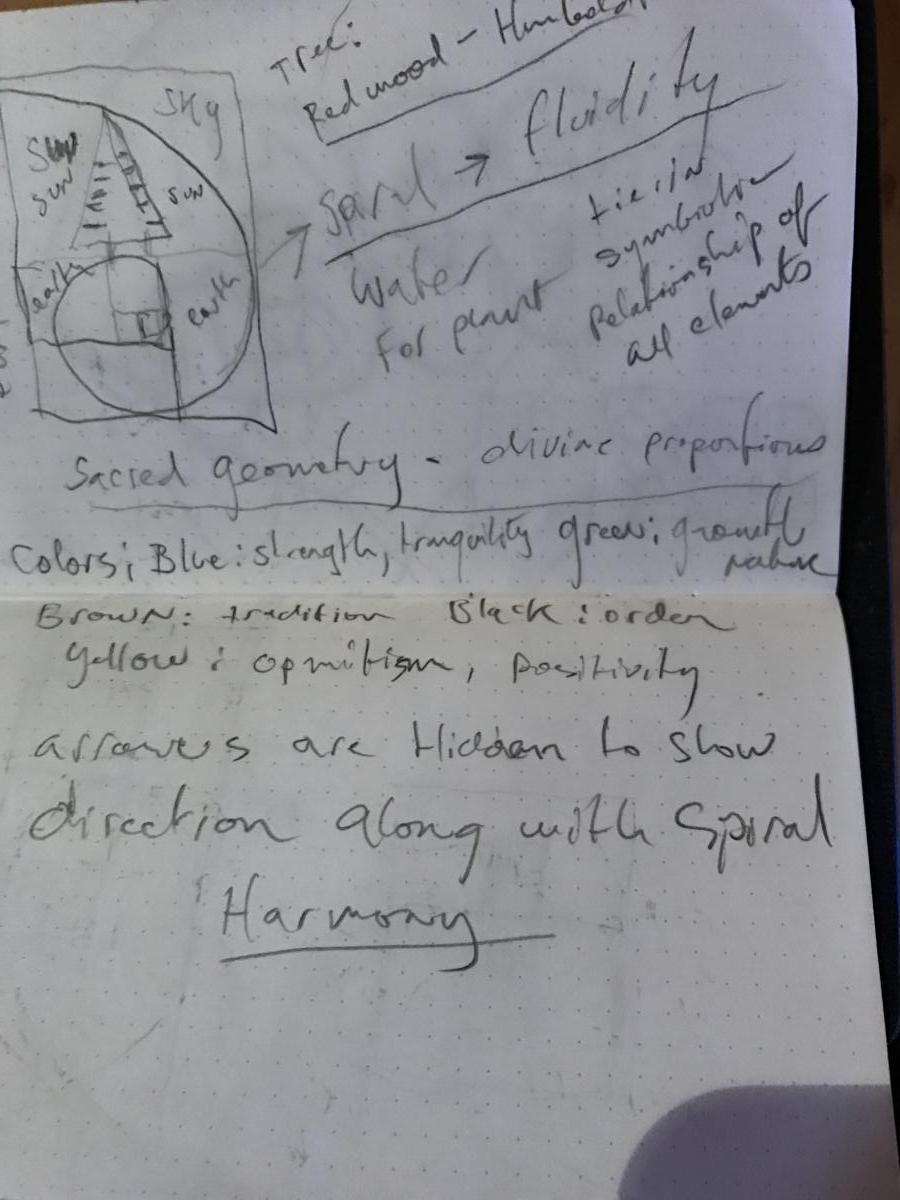 Tree:
Redwood - Humbold
Sky
sun
sun
earth
earth
Spiral → fluidity
water
for plant
ties in
symbiotic
relationship of
all elements
Sacred geometry - divine proportions
Colors; Blue: strength, tranquility green: growth
nature
Brown: tradition Black: order
yellow: opmitism, positivity
arrows are Hidden to show
direction along with Spiral
Harmony